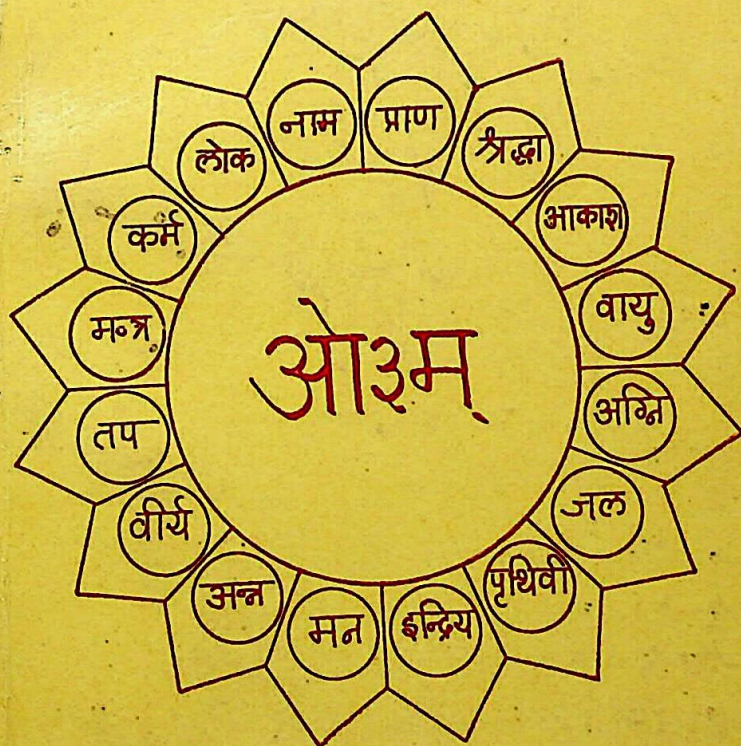 ओ३म्
प्राण
श्रद्धा
आकाश
वायु
अग्नि
जल
पृथिवी
इन्द्रिय
मन
अन्न
वीर्य
तप
मन्त्र
कर्म
लोक
नाम